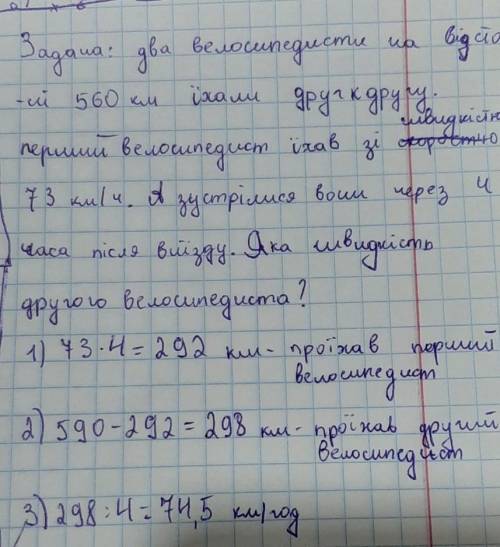 Задача: два велосипедисти на відста
-ні 560 км їхали друг к другу.
швидкістю
перший велосипедист їхав зі скоростью
73 км/ч. А зустрілися вони через 4
часа після виїзду. Яка швидкість
другого велосипедиста?
1) 73·4=292 км- проїхав перший
велосипедист
2) 590-292=298 км- проїхав другий
велосипедист
3) 298:4=74,5 км/год